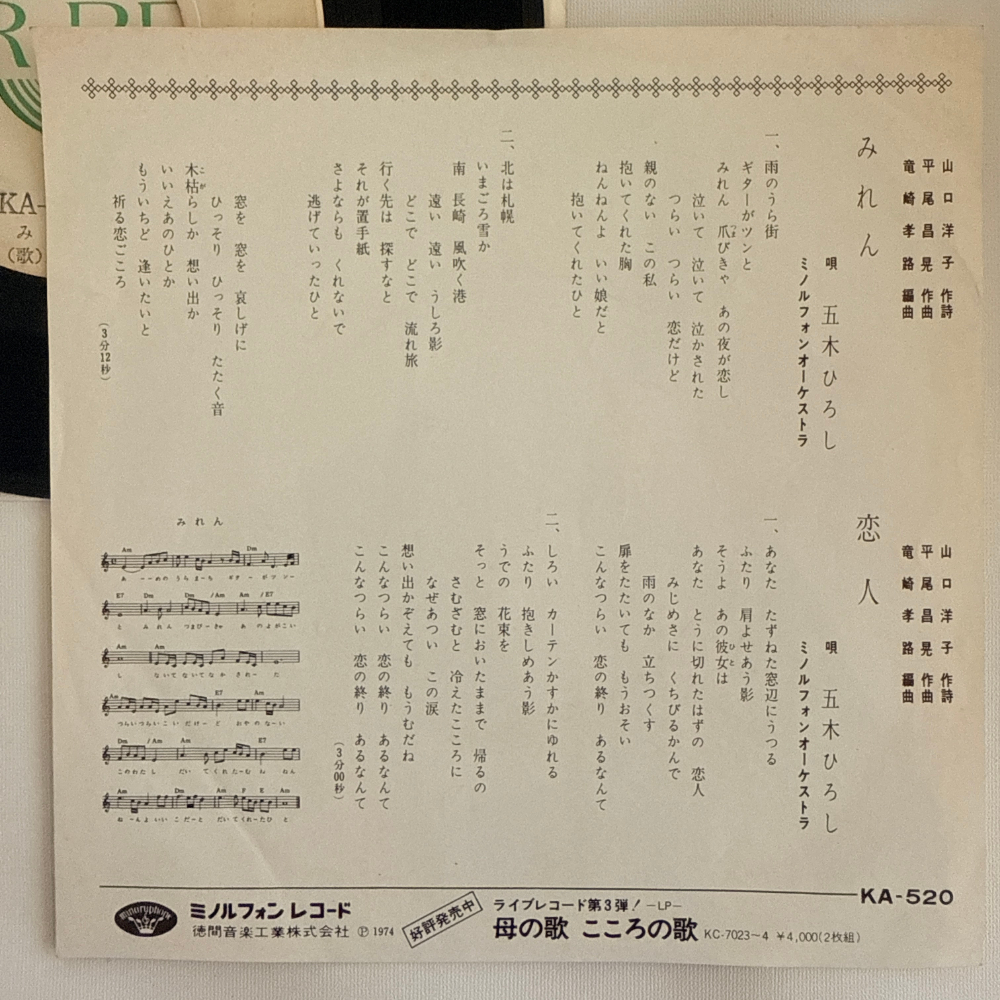 みれん
山口洋子 作詩
平尾昌晃 作曲
竜崎孝路 編曲
唄 五木ひろし
ミノルフォンオーケストラ
一、雨のうら街
ギターがツンと
みれん 爪びきゃ あの夜が恋し
泣いて 泣いて 泣かされた
つらい つらい 恋だけど
親のない この私
抱いてくれた胸
ねんねんよ いい娘だと
抱いてくれたひと
二、北は札幌
いまごろ雪か
南 長崎 風吹く港
遠い 遠い うしろ影
どこで どこで 流れ旅
行く先は 探すなと
それが置手紙
さよならも くれないで
逃げていったひと
窓を 窓を 哀しげに
ひっそり ひっそり たたく音
木枯らしか 想い出か
こが
いいえあのひとか
もういちど 逢いたいと
祈る恋ごころ
(3分12秒)
恋人
山口洋子 作詩
平尾昌晃 作曲
竜崎孝路 編曲
唄 五木ひろし
ミノルフォンオーケストラ
一、あなた たずねた窓辺にうつる
ふたり 肩よせあう影
そうよ あの彼女は
ひと
あなた とうに切れたはずの 恋人
みじめさに くちびるかんで
雨のなか 立ちつくす
扉をたたいても もうおそい
こんなつらい 恋の終り あるなんて
二、しろい カーテンかすかにゆれる
ふたり 抱きしめあう影
うでの 花束を
そっと 窓においたままで 帰るの
さむざむと 冷えたこころに
なぜあつい この涙
想い出かぞえても もうむだね
こんなつらい 恋の終り あるなんて
こんなつらい 恋の終り あるなんて
(3分00秒)
みれん
KA-520
minoruphone
ミノルフォン レコード
徳間音楽工業株式会社 Ⓟ 1974
好評発売中
ライブレコード第3弾! —LP—
母の歌 こころの歌 KC-7023~4 ¥4,000(2枚組)
KA-
み
(歌)